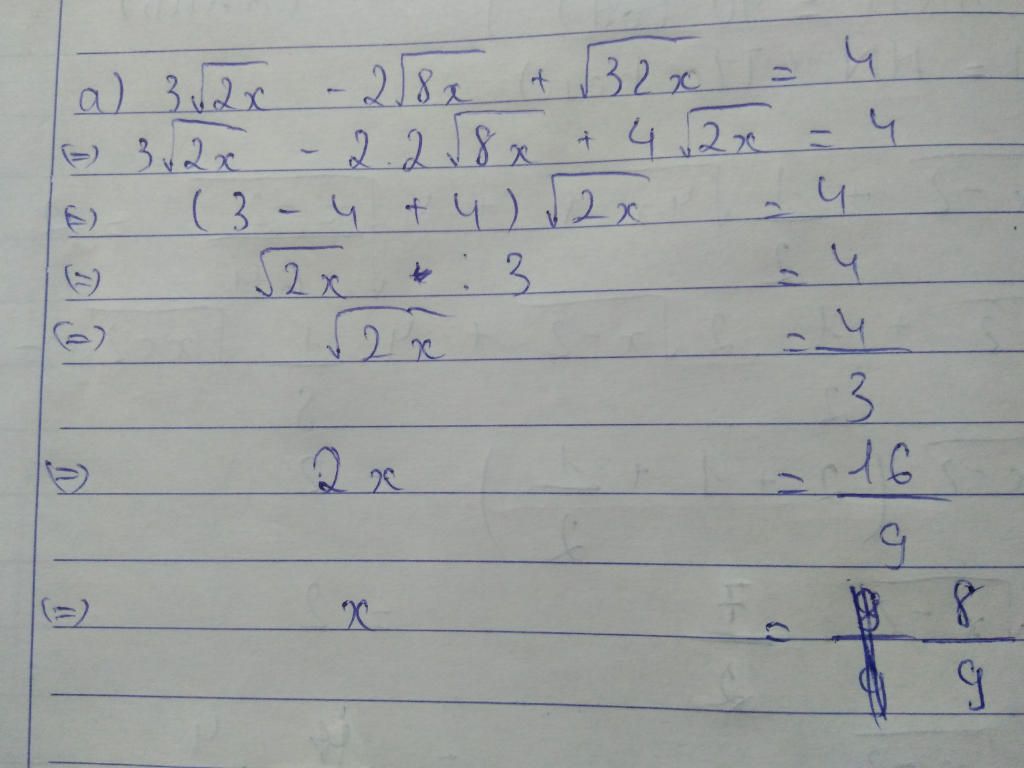 a) 3√2x - 2√8x + √32x = 4
(=) 3√2x - 2.2√8x + 4√2x = 4
(=) (3 - 4 + 4)√2x = 4
(=) √2x : 3 = 4
(=) √2x = 4/3
(=) 2x = 16/9
(=) x = 8/9